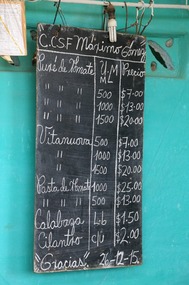 C.CSF Máximo Gómez
Puré de Tomate U.M ML Precio
" " " 500 $7.00
" " " 1000 $13.00
" " " 1500 $20.00
Vitanuova 500 $7.00
" " 1000 $13.00
" " 1500 $20.00
Pasta de Tomate 1000 $25.00
" " " 500 $13.00
Calabaza Lb $1.50
Cilantro c/u $2.00
"Gracias" 26-12-15.